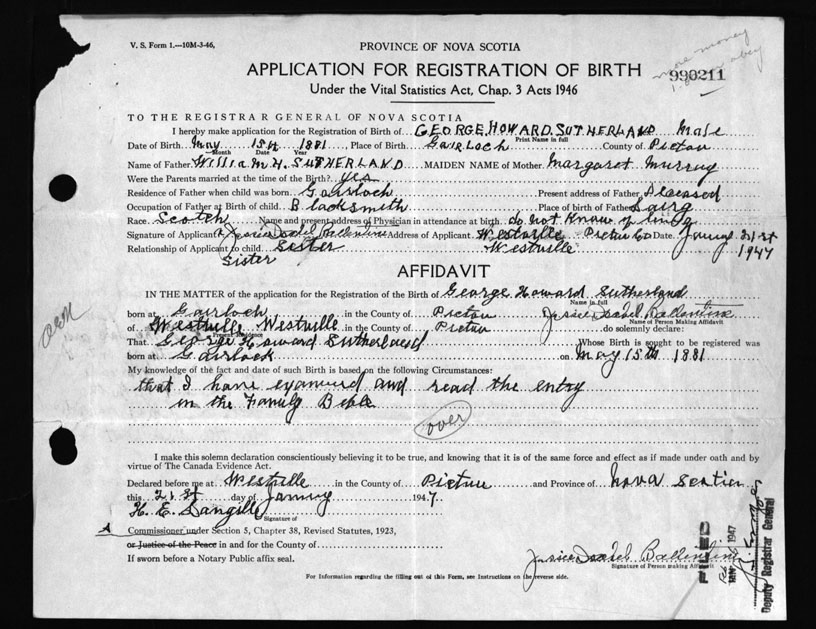 V. S. Form 1.—10M-3-46,
PROVINCE OF NOVA SCOTIA
more money
APPLICATION FOR REGISTRATION OF BIRTH
990211
Under the Vital Statistics Act, Chap. 3 Acts 1946
TO THE REGISTRAR GENERAL OF NOVA SCOTIA
I hereby make application for the Registration of Birth of GEORGE. HOWARD. SUTHERLAND Male
Print Name in full
Date of Birth May 15th 1881 Place of Birth GAIRLOCH County of Pictou
Month Date Year
Name of Father William H. SUTHERLAND MAIDEN NAME of Mother Margaret Murray
Were the Parents married at the time of the Birth? yes
Residence of Father when child was born Gairloch Present address of Father Deceased
Occupation of Father at Birth of child Blacksmith Place of birth of Father Lairg
Race Scotch Name and present address of Physician in attendance at birth do not Know if living
Signature of Applicant Jessie Isabel Ballentine Address of Applicant Westville Pictou Co Date 21st
Relationship of Applicant to child Sister Westville 1947
Sister
AFFIDAVIT
IN THE MATTER of the application for the Registration of the Birth of George Howard Sutherland
Name in full
born at Gairloch in the County of Pictou Jessie Isabel Ballentine
Name of Person Making Affidavit
of Westville Westville in the County of Pictou do solemnly declare:
Present Residence
That George Howard Sutherland Whose Birth is sought to be registered was
born at Gairlock on May 15th 1881
My knowledge of the fact and date of such Birth is based on the following Circumstances:
that I have examined and read the entry
in the Family Bible
over
I make this solemn declaration conscientiously believing it to be true, and knowing that it is of the same force and effect as if made under oath and by
virtue of The Canada Evidence Act.
Declared before me at Westville in the County of Pictou and Province of Nova Scotia
this 21st day of 1947.
H. E. Langille
Signature of
A Commissioner under Section 5, Chapter 38, Revised Statutes, 1923,
or Justice of the Peace in and for the County of
If sworn before a Notary Public affix seal.
Jessie Isabel Ballentine
Signature of Person making Affidavit
For Information regarding the filling out of this Form, see Instructions on the reverse side.
FILED
1947
Deputy Registrar General